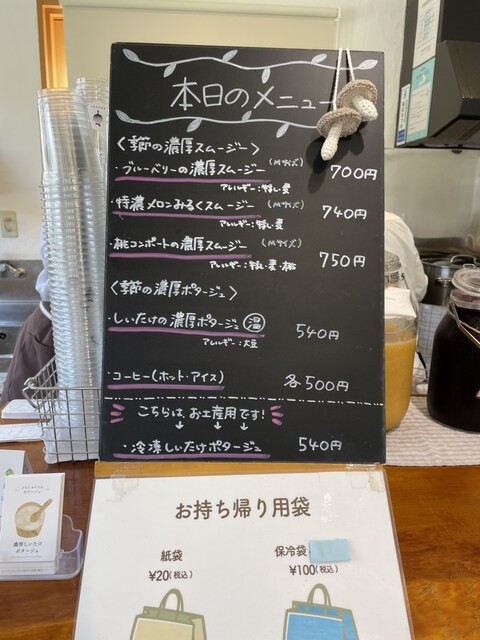 本日のメニュー
〈季節の濃厚スムージー〉
・ブルーベリーの濃厚スムージー (Mサイズ) 700円
アレルギー：乳・麦
・特濃メロンみるくスムージー (Mサイズ) 740円
アレルギー：乳・麦
・桃コンポートの濃厚スムージー (Mサイズ) 750円
アレルギー：乳・麦・桃
〈季節の濃厚ポタージュ〉
・しいたけの濃厚ポタージュ 温 540円
アレルギー：大豆
・コーヒー(ホット・アイス) 各500円
こちらは、お土産用です!
↓ ↓ ↓
・冷凍しいたけポタージュ 540円
お持ち帰り用袋
紙袋 保冷袋
¥20(税込) ¥100(税込)
濃厚しいたけ
ポタージュ